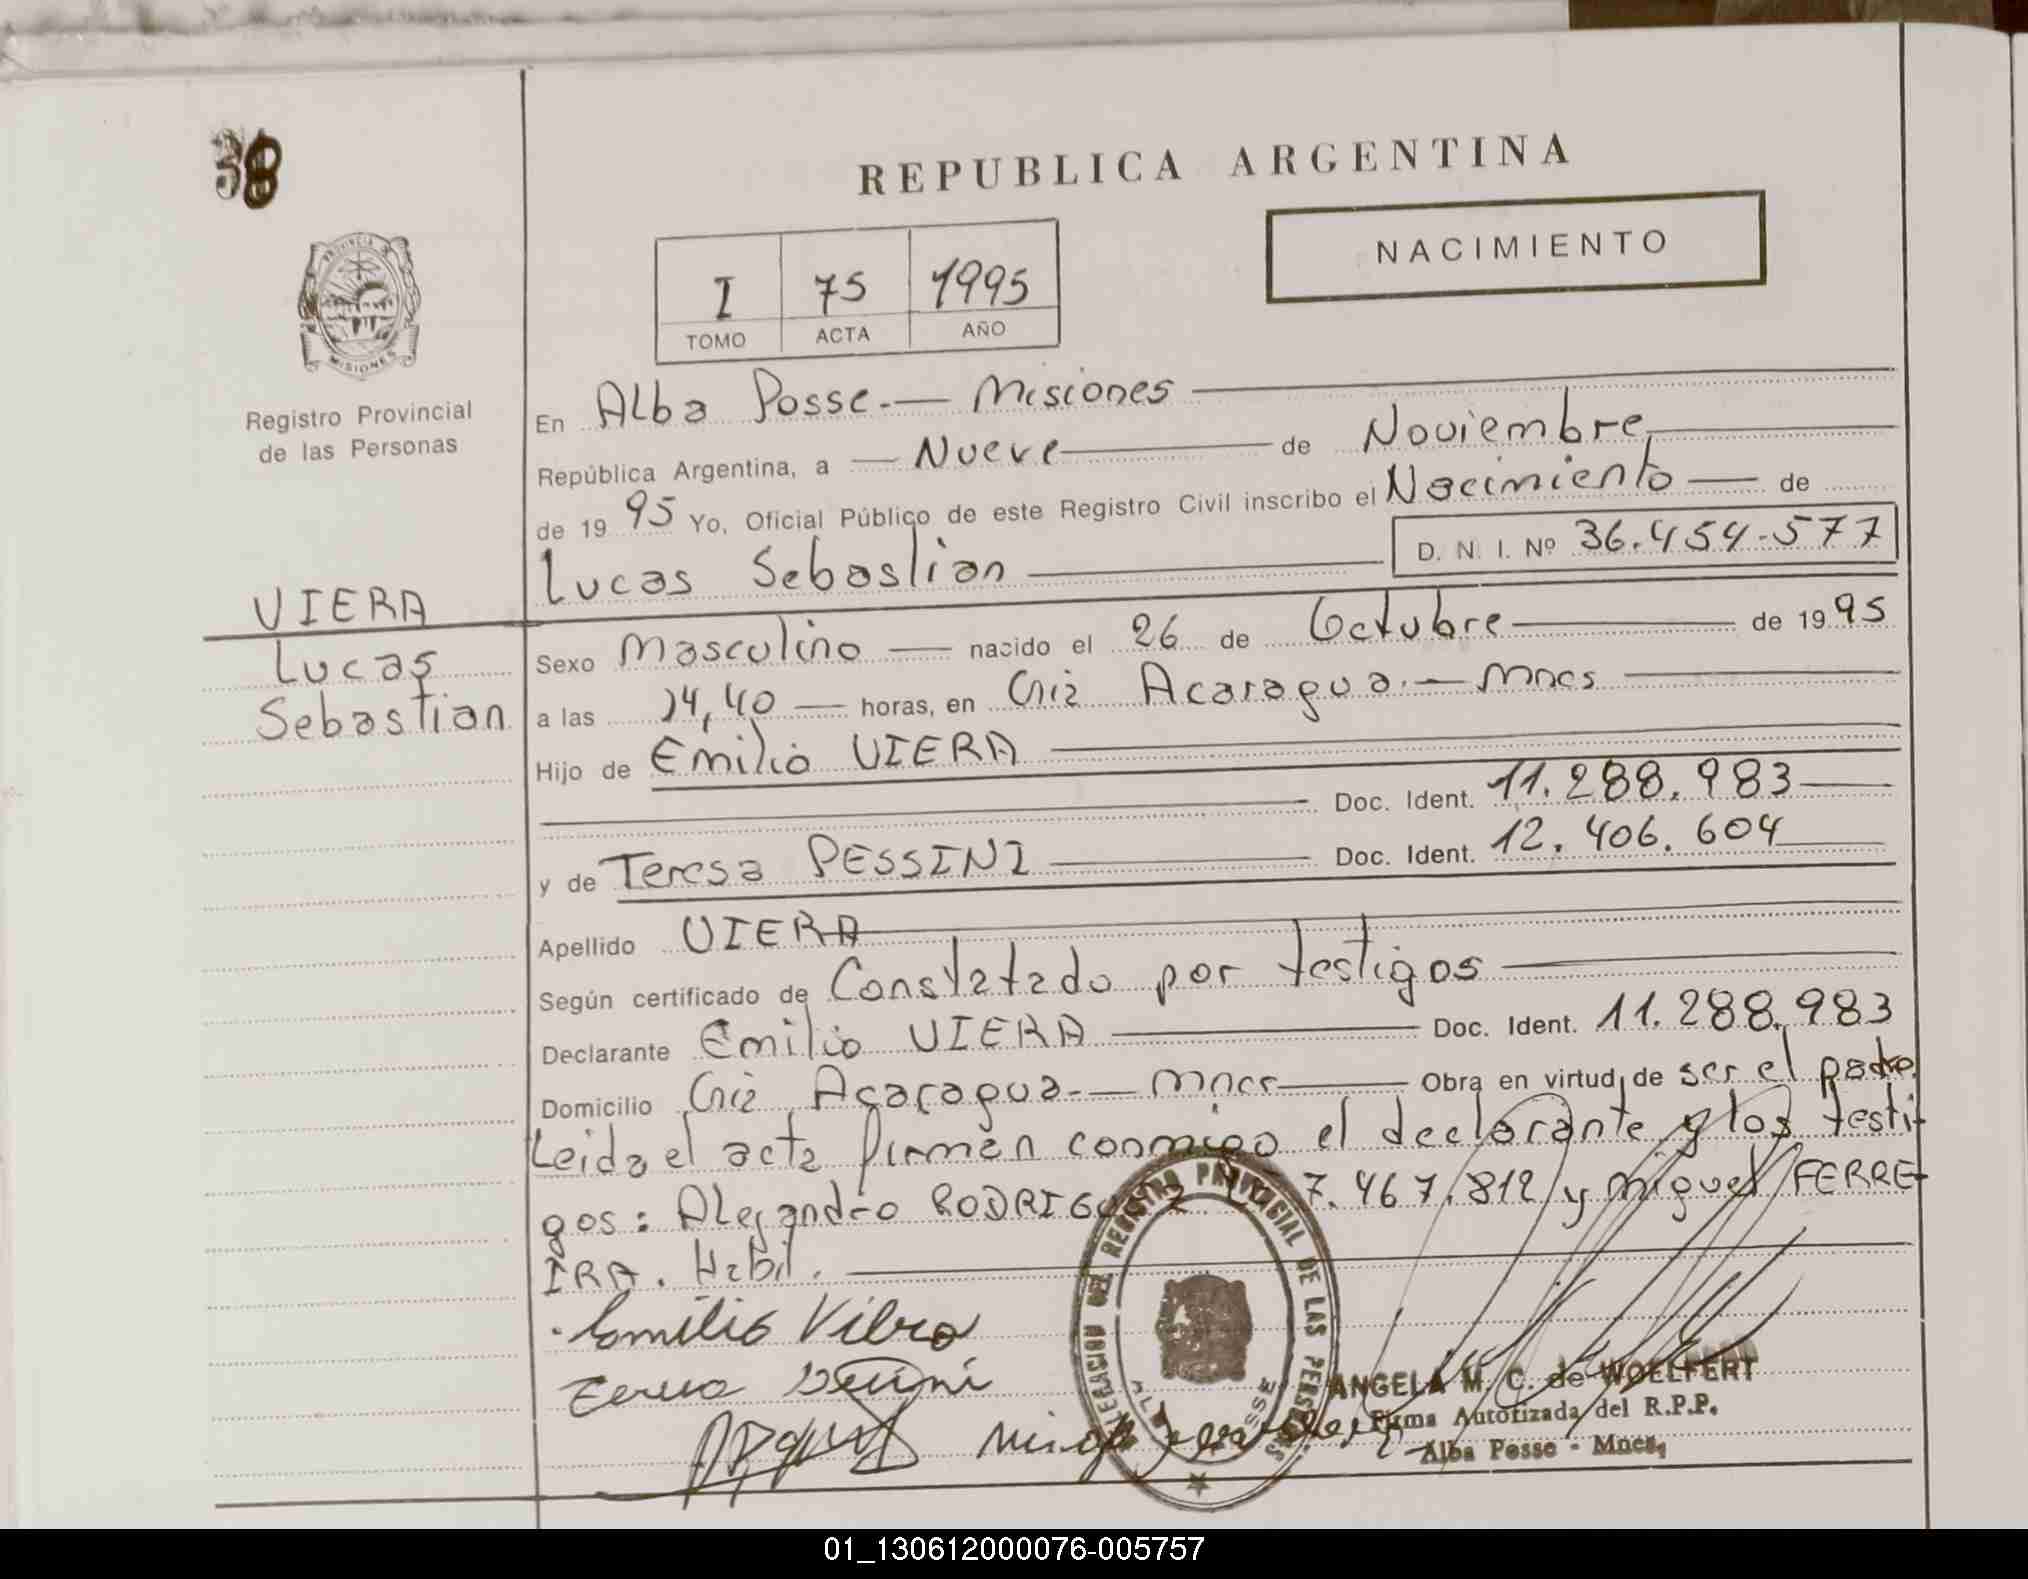 38
REPUBLICA ARGENTINA
NACIMIENTO
I 75 1995
TOMO ACTA AÑO
PROVINCIA DE
MISIONES
Registro Provincial
de las Personas
VIERA
Lucas
Sebastian
En Alba Posse.— Misiones
República Argentina, a — Nueve — de Noviembre
de 1995 Yo, Oficial Público de este Registro Civil inscribo el Nacimiento — de
Lucas Sebastian — D. N. I. Nº 36.454.577
Sexo Masculino — nacido el 26 de Octubre — de 1995
a las 14,40 — horas, en Cnia Acaragua.— Mnes
Hijo de Emilio VIERA
Doc. Ident. 11.288.983
y de Teresa PESSINI — Doc. Ident. 12.406.604
Apellido VIERA
Según certificado de Constatado por testigos
Declarante Emilio VIERA — Doc. Ident. 11.288.983
Domicilio Cnia Acaragua.— Mnes — Obra en virtud de ser el padre
Leida el acta firman conmigo el declarante y los testi-
gos: Alejandro RODRIGUEZ 7.467.812 y Miguel FERRE-
IRA. Habil.
Emilio Viera
DELEGACION DEL REGISTRO PROVINCIAL DE LAS PERSONAS
ALBA POSSE
ANGELA M. C. de WOELFERT
Firma Autorizada del R.P.P.
Alba Posse - Mnes,
01_130612000076-005757